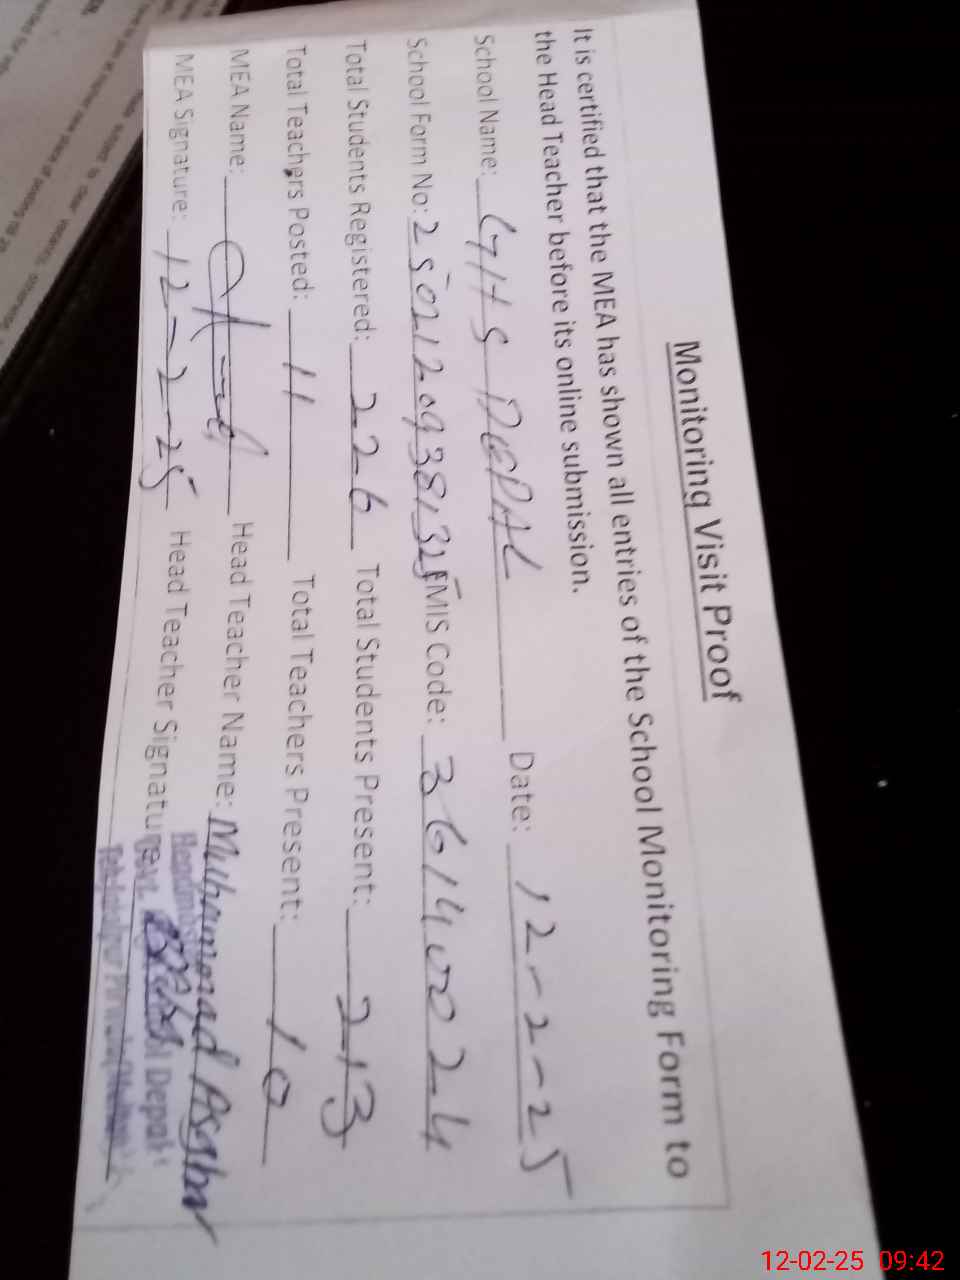 Monitoring Visit Proof
It is certified that the MEA has shown all entries of the School Monitoring Form to
the Head Teacher before its online submission.
School Name: GHS DEPAL Date: 12-2-25
School Form No: 25021209381325 EMIS Code: 36140024
Total Students Registered: 226 Total Students Present: 213
Total Teachers Posted: 11 Total Teachers Present: 10
MEA Name: Head Teacher Name: Muhammad Asghar
MEA Signature: 12-2-25 Head Teacher Signature:
Depal
12-02-25 09:42